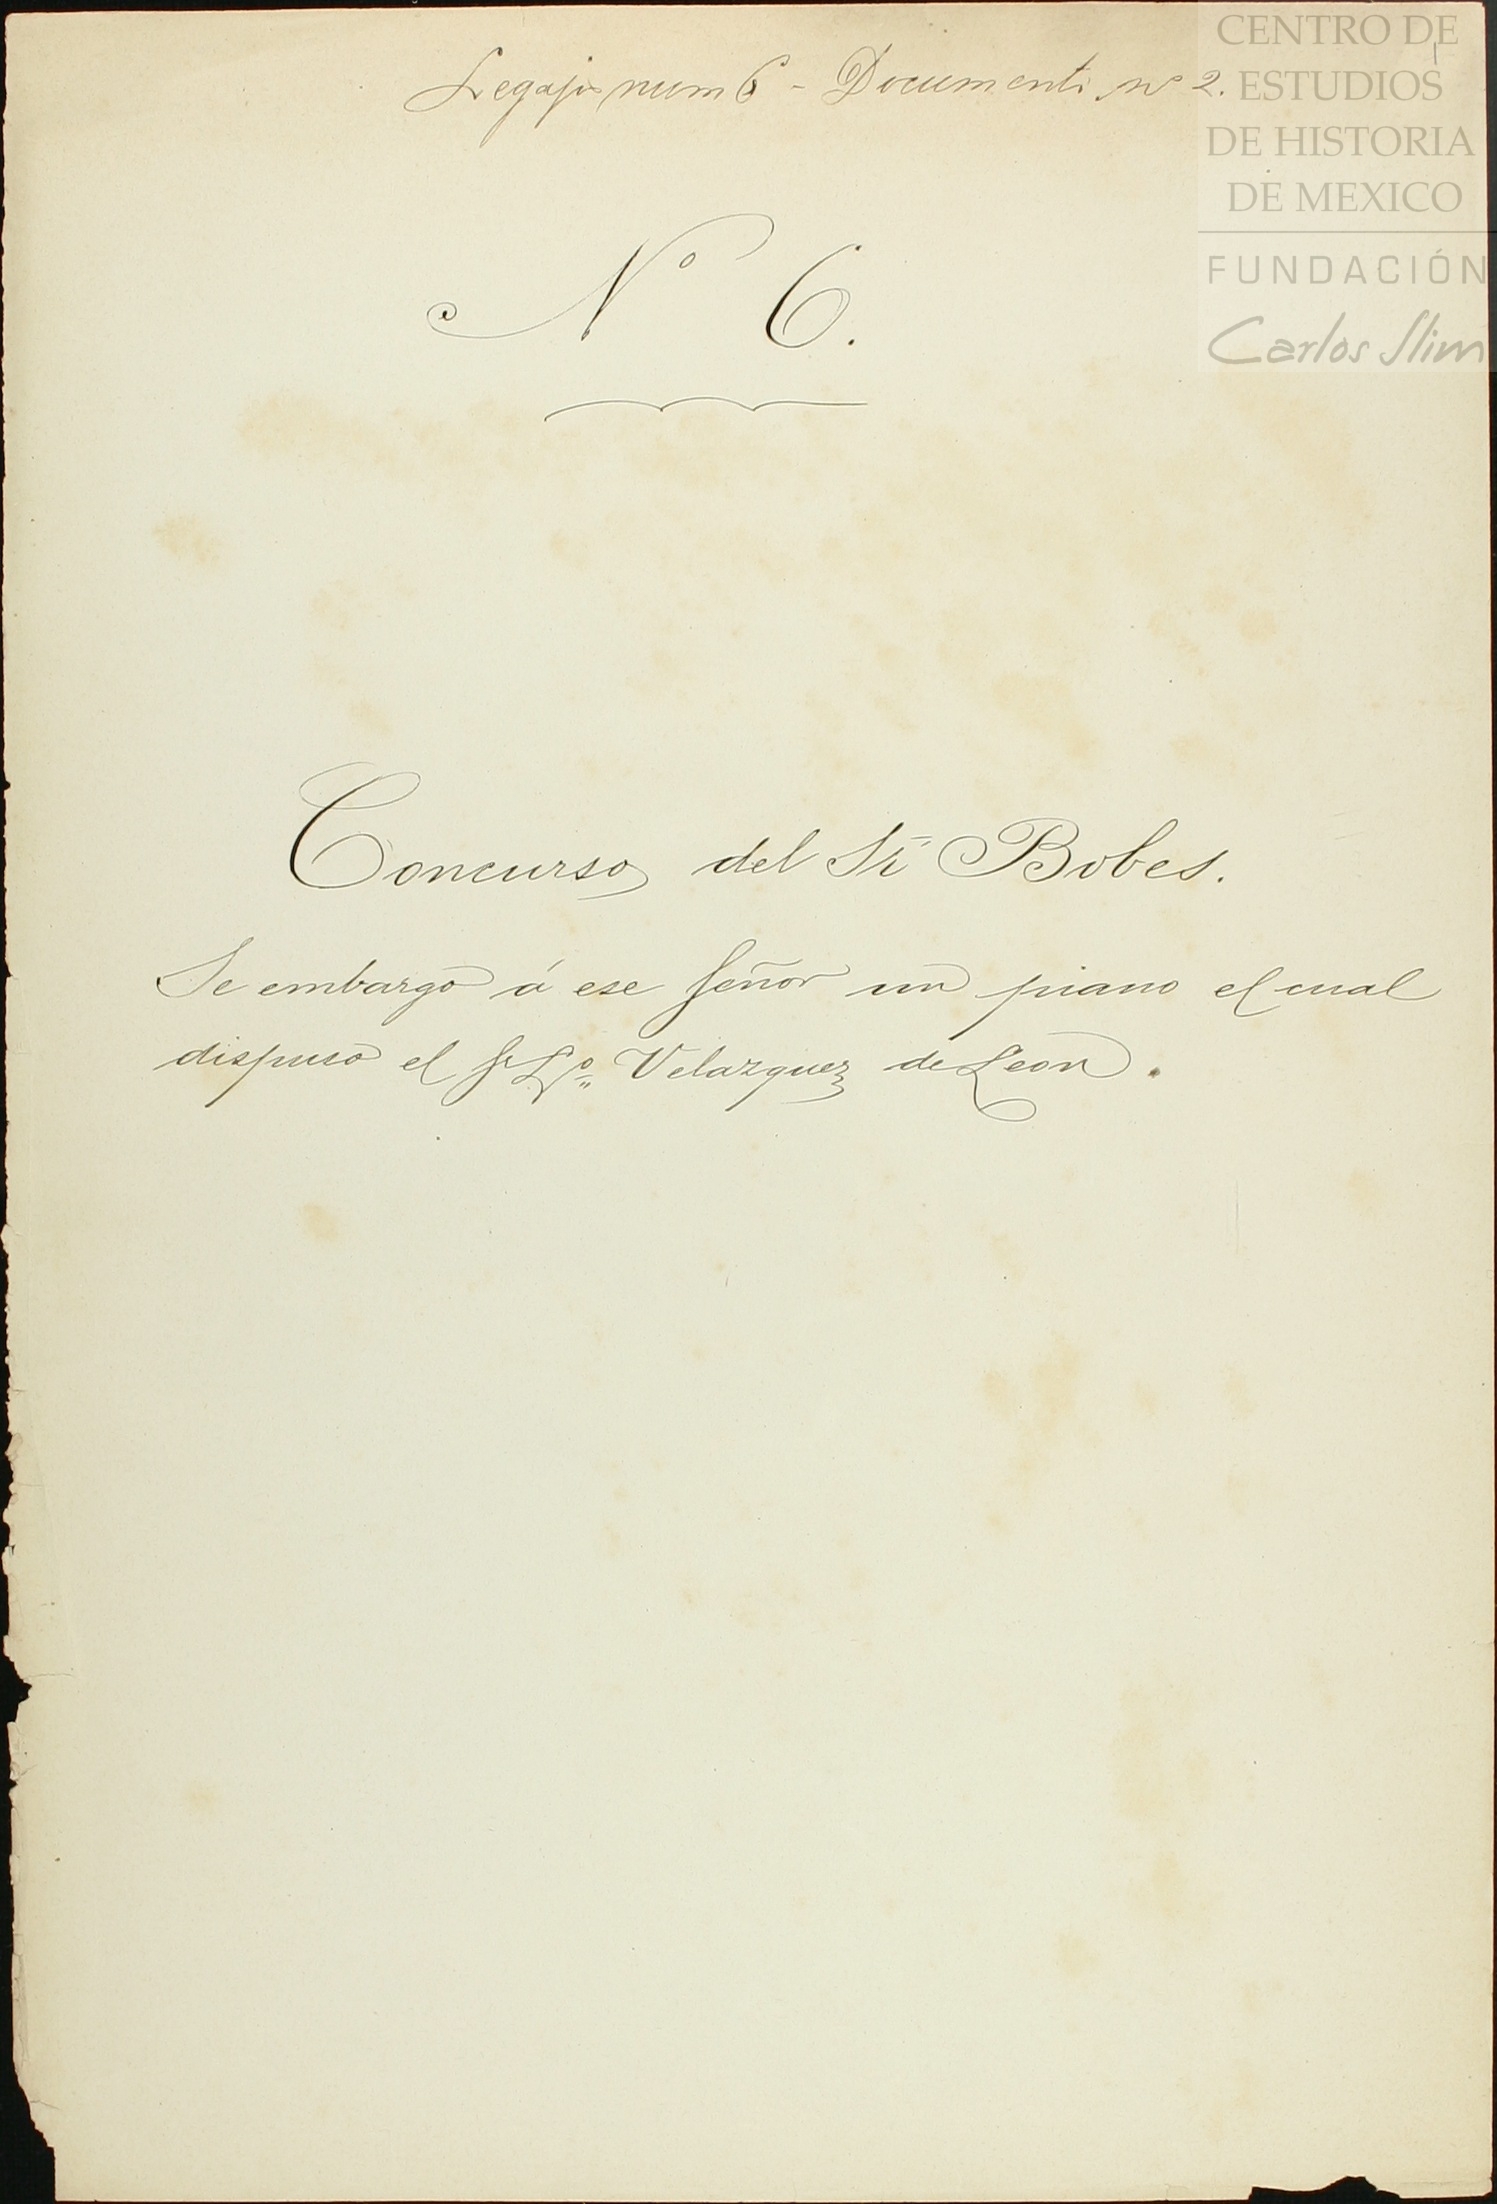 Legajo num 6 - Documento nº 2.
CENTRO DE
ESTUDIOS
DE HISTORIA
DE MEXICO
FUNDACIÓN
Carlos Slim
Nº 6.
Concurso del Sr Bobes.
Se embargó á ese Señor un piano el cual
dispuso el Sr Lo. Velazquez de Leon.